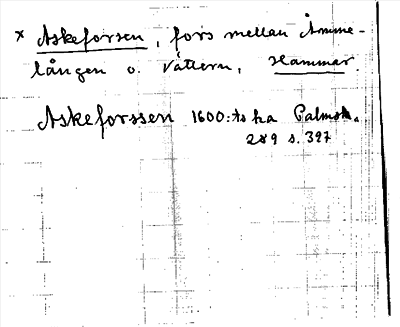 × Askeforsen, fors mellan Åmme-
lången o. Vättern, Hammar.
Askeforssen 1600:ts ha Palmsk.
289 s. 397